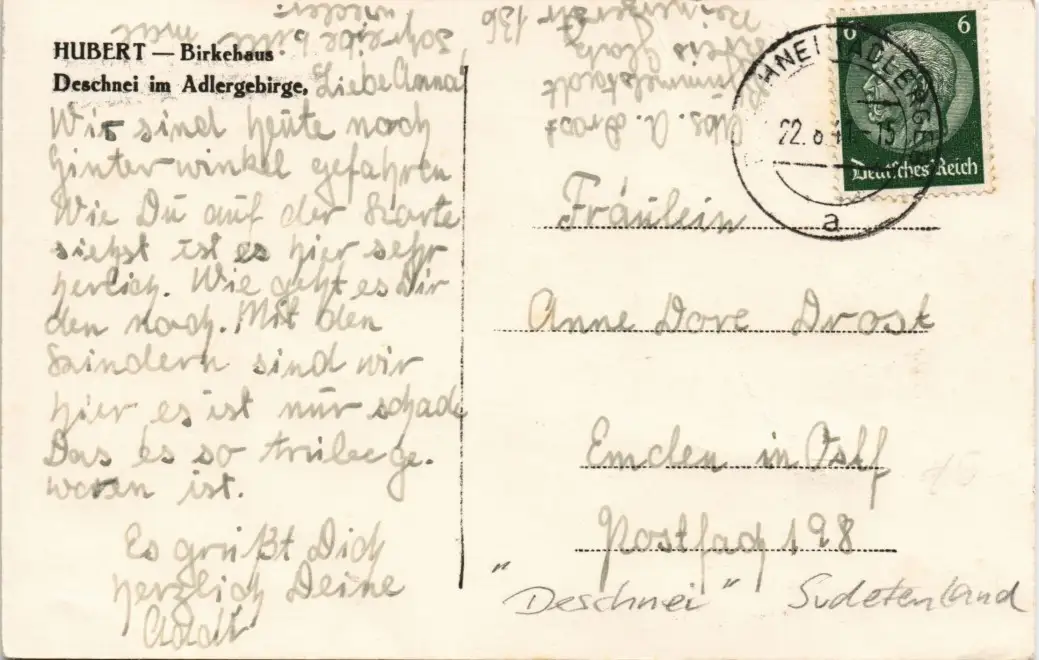 HUBERT — Birkehaus
Deschnei im Adlergebirge.
Liebe Anna!
Wir sind heute nach
hinterwinkel gefahren
Wie Du auf der Karte
siehst ist es hier sehr
herlich. Wie geht es Dir
den noch. Mit den
Kindern sind wir
hier es ist nur schade
Das es so trübe ge-
woren ist.
Es grüßt Dich
herzlich Deine
schreibe bitte mal
wieder.
Abs. A. Drost
Kreis Glatz
136
6 6
Deutsches Reich
22. 8. 41-15
a
Fräulein
Anne Dore Drost
Emden in Ostf
Postfach 198
"Deschnei" Sudetenland